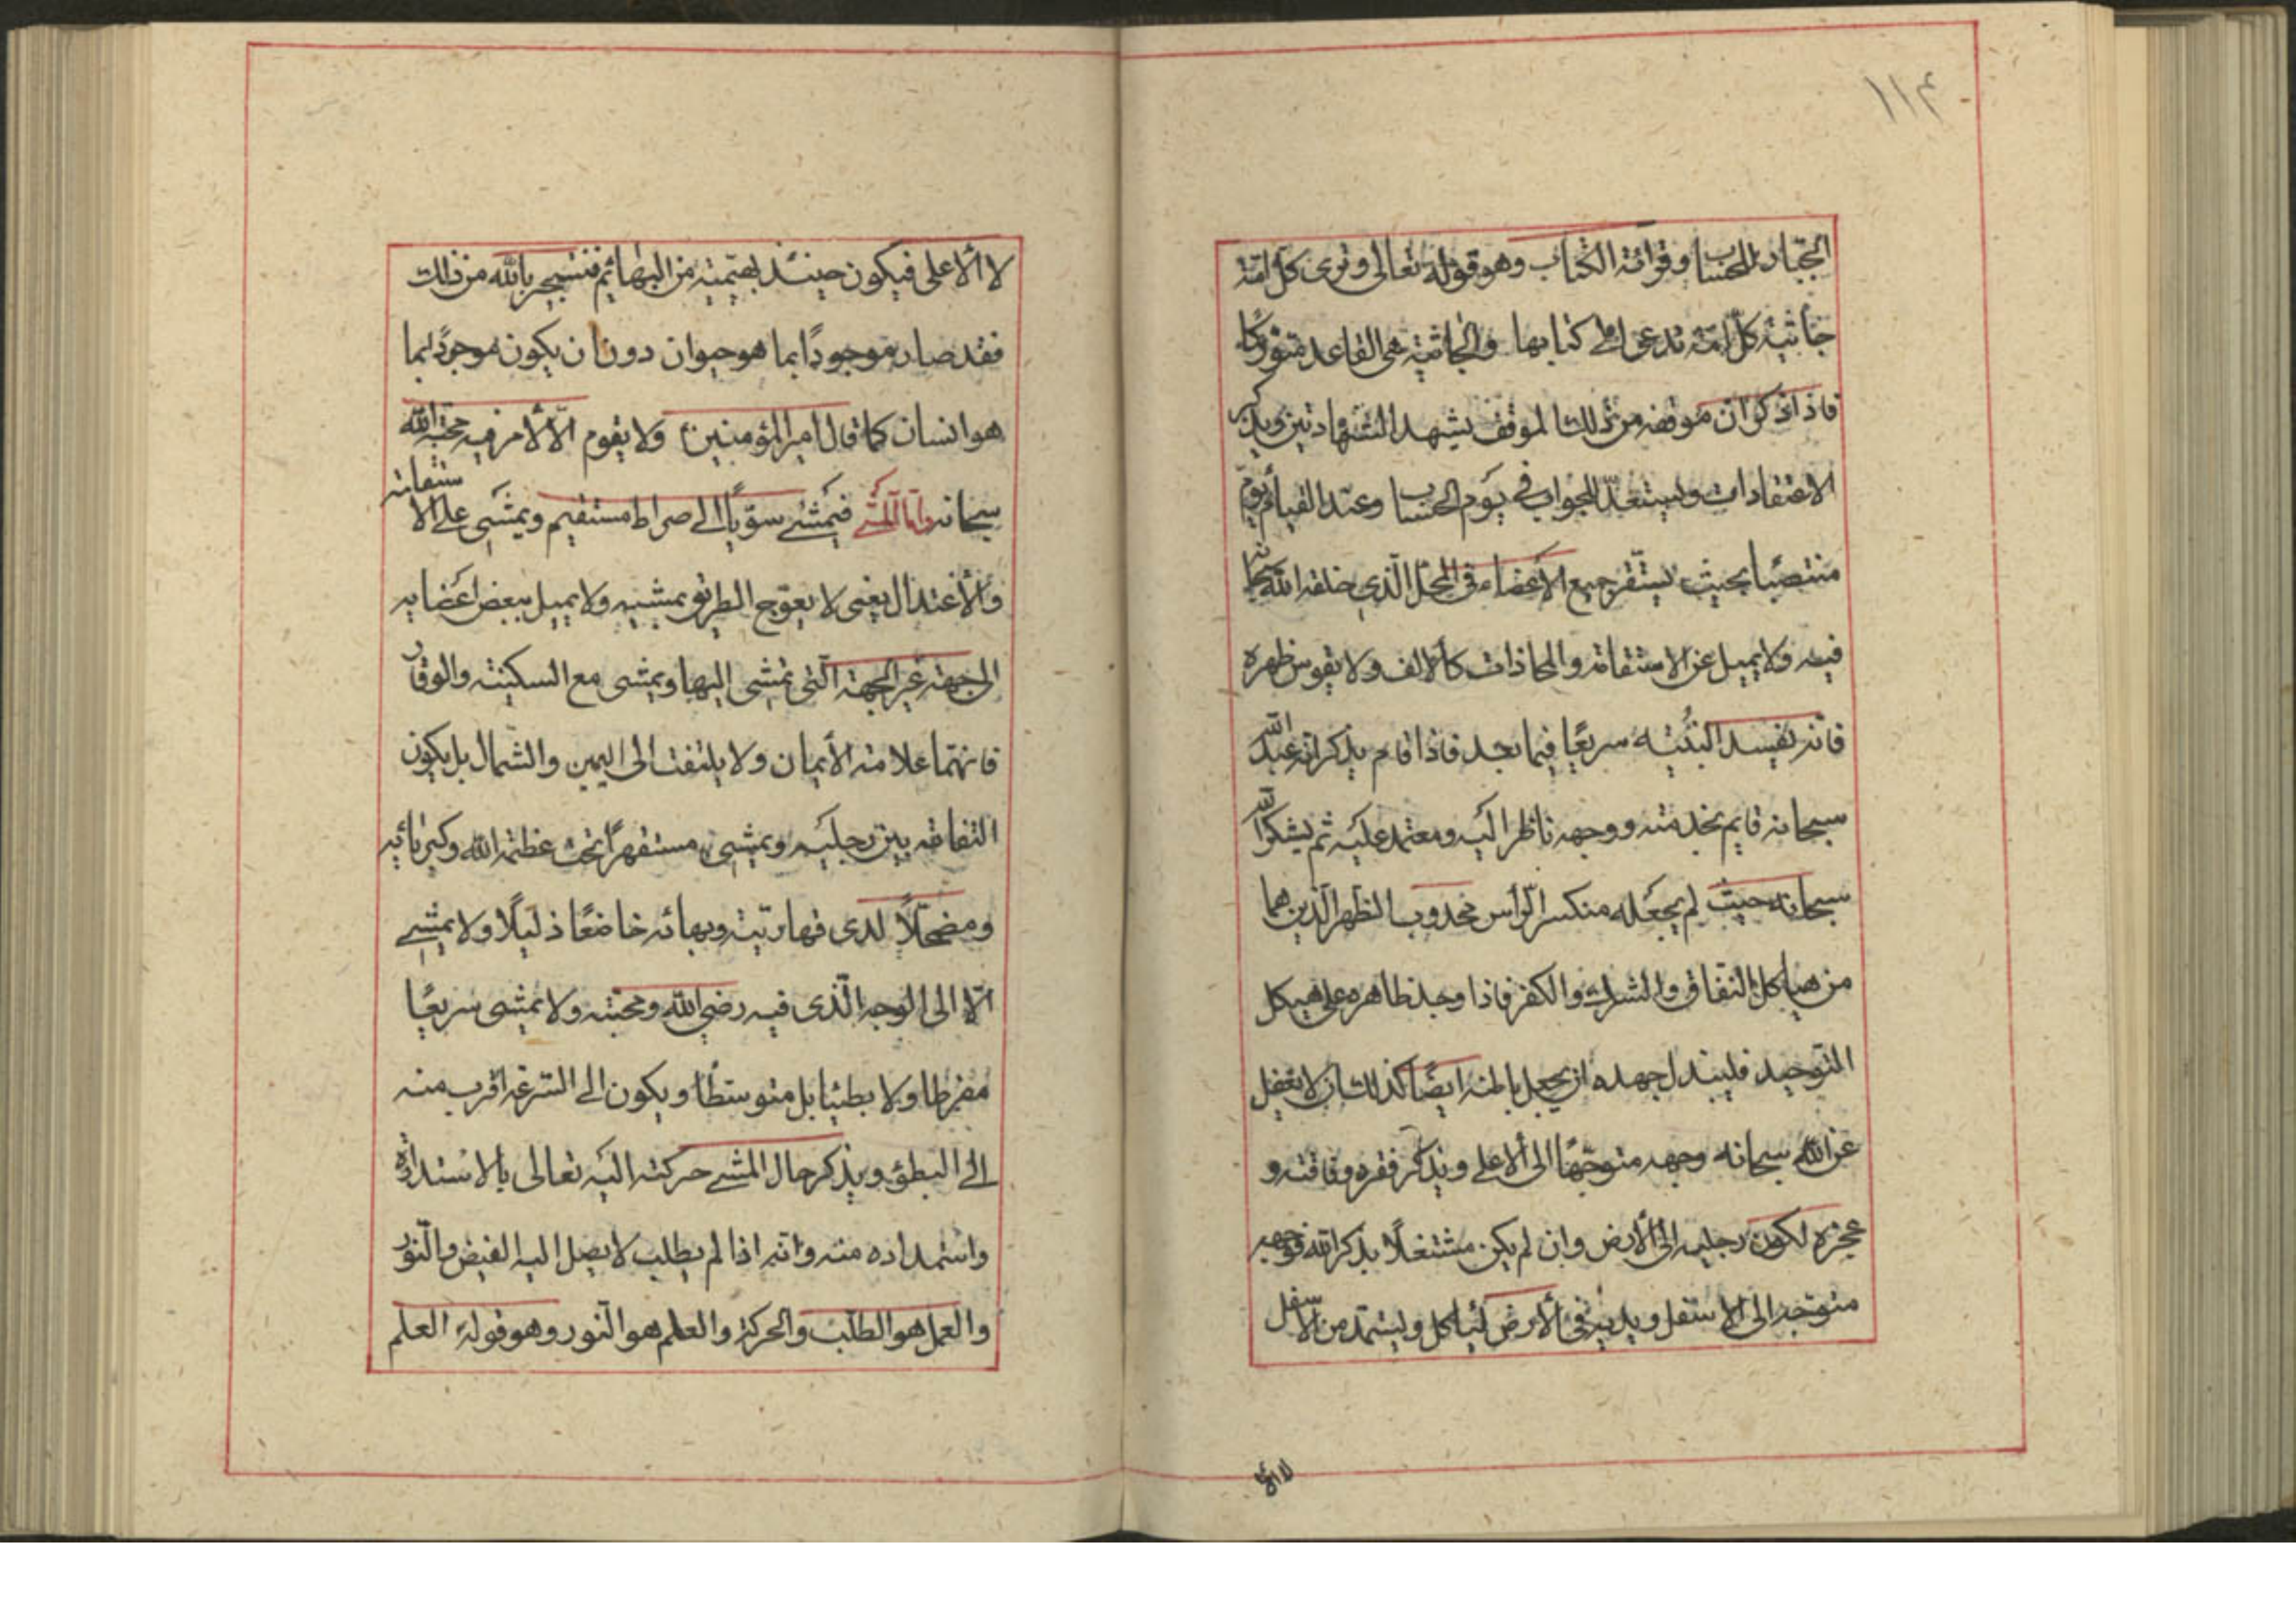 ١١٤
الجبّار للحساب وقرائة الكتاب وهو قوله تعالى وترى كلّ امّة
جاثية كلّ امّة تدعى الى كتابها والجاثية هى القاعد متورّكا
فاذا ذكر ان موقفه من ذلك الموقف يشهد الشهادتين ويذكر
الاعتقادات وليستعدّ للجواب فى يوم الحساب وعند القيام يقوم
منتصبًا بحيث يستقر جميع الاعضاء فى المحل الّذي خلقه الله سبحانه
فيه ولا يميل عن الاستقامة والمحاذات كالالف ولا يقوس ظهره
فانه تفسد البنية سريعًا فيما بعد فاذا قام يذكر انه عبد الله
سبحانه قايم بخدمته ووجهه ناظر اليه ومعتمد عليه ثم يشكر الله
سبحانه حيث لم يجعله منكسر الرّأس محدوب الظهر الّذين هما
من هياكل النفاق والشرك والكفر فاذا وجد ظاهره على هيكل
التوحيد فليبذل جهده ان يجعل باطنه ايضًا كذلك بان لا يغفل
عن الله سبحانه وجهه متوجّهًا الى الاعلى ويذكر فقره وفاقته و
عجزه لكون رجليه الى الارض وان لم يكن مشتغلًا بذكر الله فوجهه
متوجه الى الاسفل ويديه فى الارض لياكل وليستمد من الاسفل
لا الأ
لا الاعلى فيكون حينئذ بهيمة من البهائم فنستجير بالله من ذلك
فقد صار موجودًا بما هو حيوان دون ان يكون موجودًا بما
هو انسان كما قال امير المؤمنين ولا يقوم الّا لامر فيه محبة الله
سبحانه وامّا المشي فيمشي سويّا الى صراط مستقيم ويمشي على الاستقامة
والاعتدال يعنى لا يعوّج الطريق بمشيه ولا يميل ببعض اعضايه
الى جهة غير الجهة الّتى تمشى اليها ويمشى مع السكينة والوقار
فانهما علامة الايمان ولا يلتفت الى اليمين والشمال بل يكون
التفاته بين رجليه ويمشى مستقهرًا تحت عظمة الله وكبريائيه
ومضمحلًا لدى قهاريته وبهائه خاضعًا ذليلًا ولا يمشي
الّا الى الوجه الّذى فيه رضى الله ومحبته ولا يمشى سريعًا
مفرطا ولا بطيئا بل متوسطًا ويكون الى السرعة اقرب منه
الى البطؤ ويذكر حال المشي حركته اليه تعالى بالاستدارة
واستمداده منه وانه اذا لم يطلب لا يصل اليه الفيض والنّور
والعمل هو الطلب والحركة والعلم هو النّور وهو قوله العلم